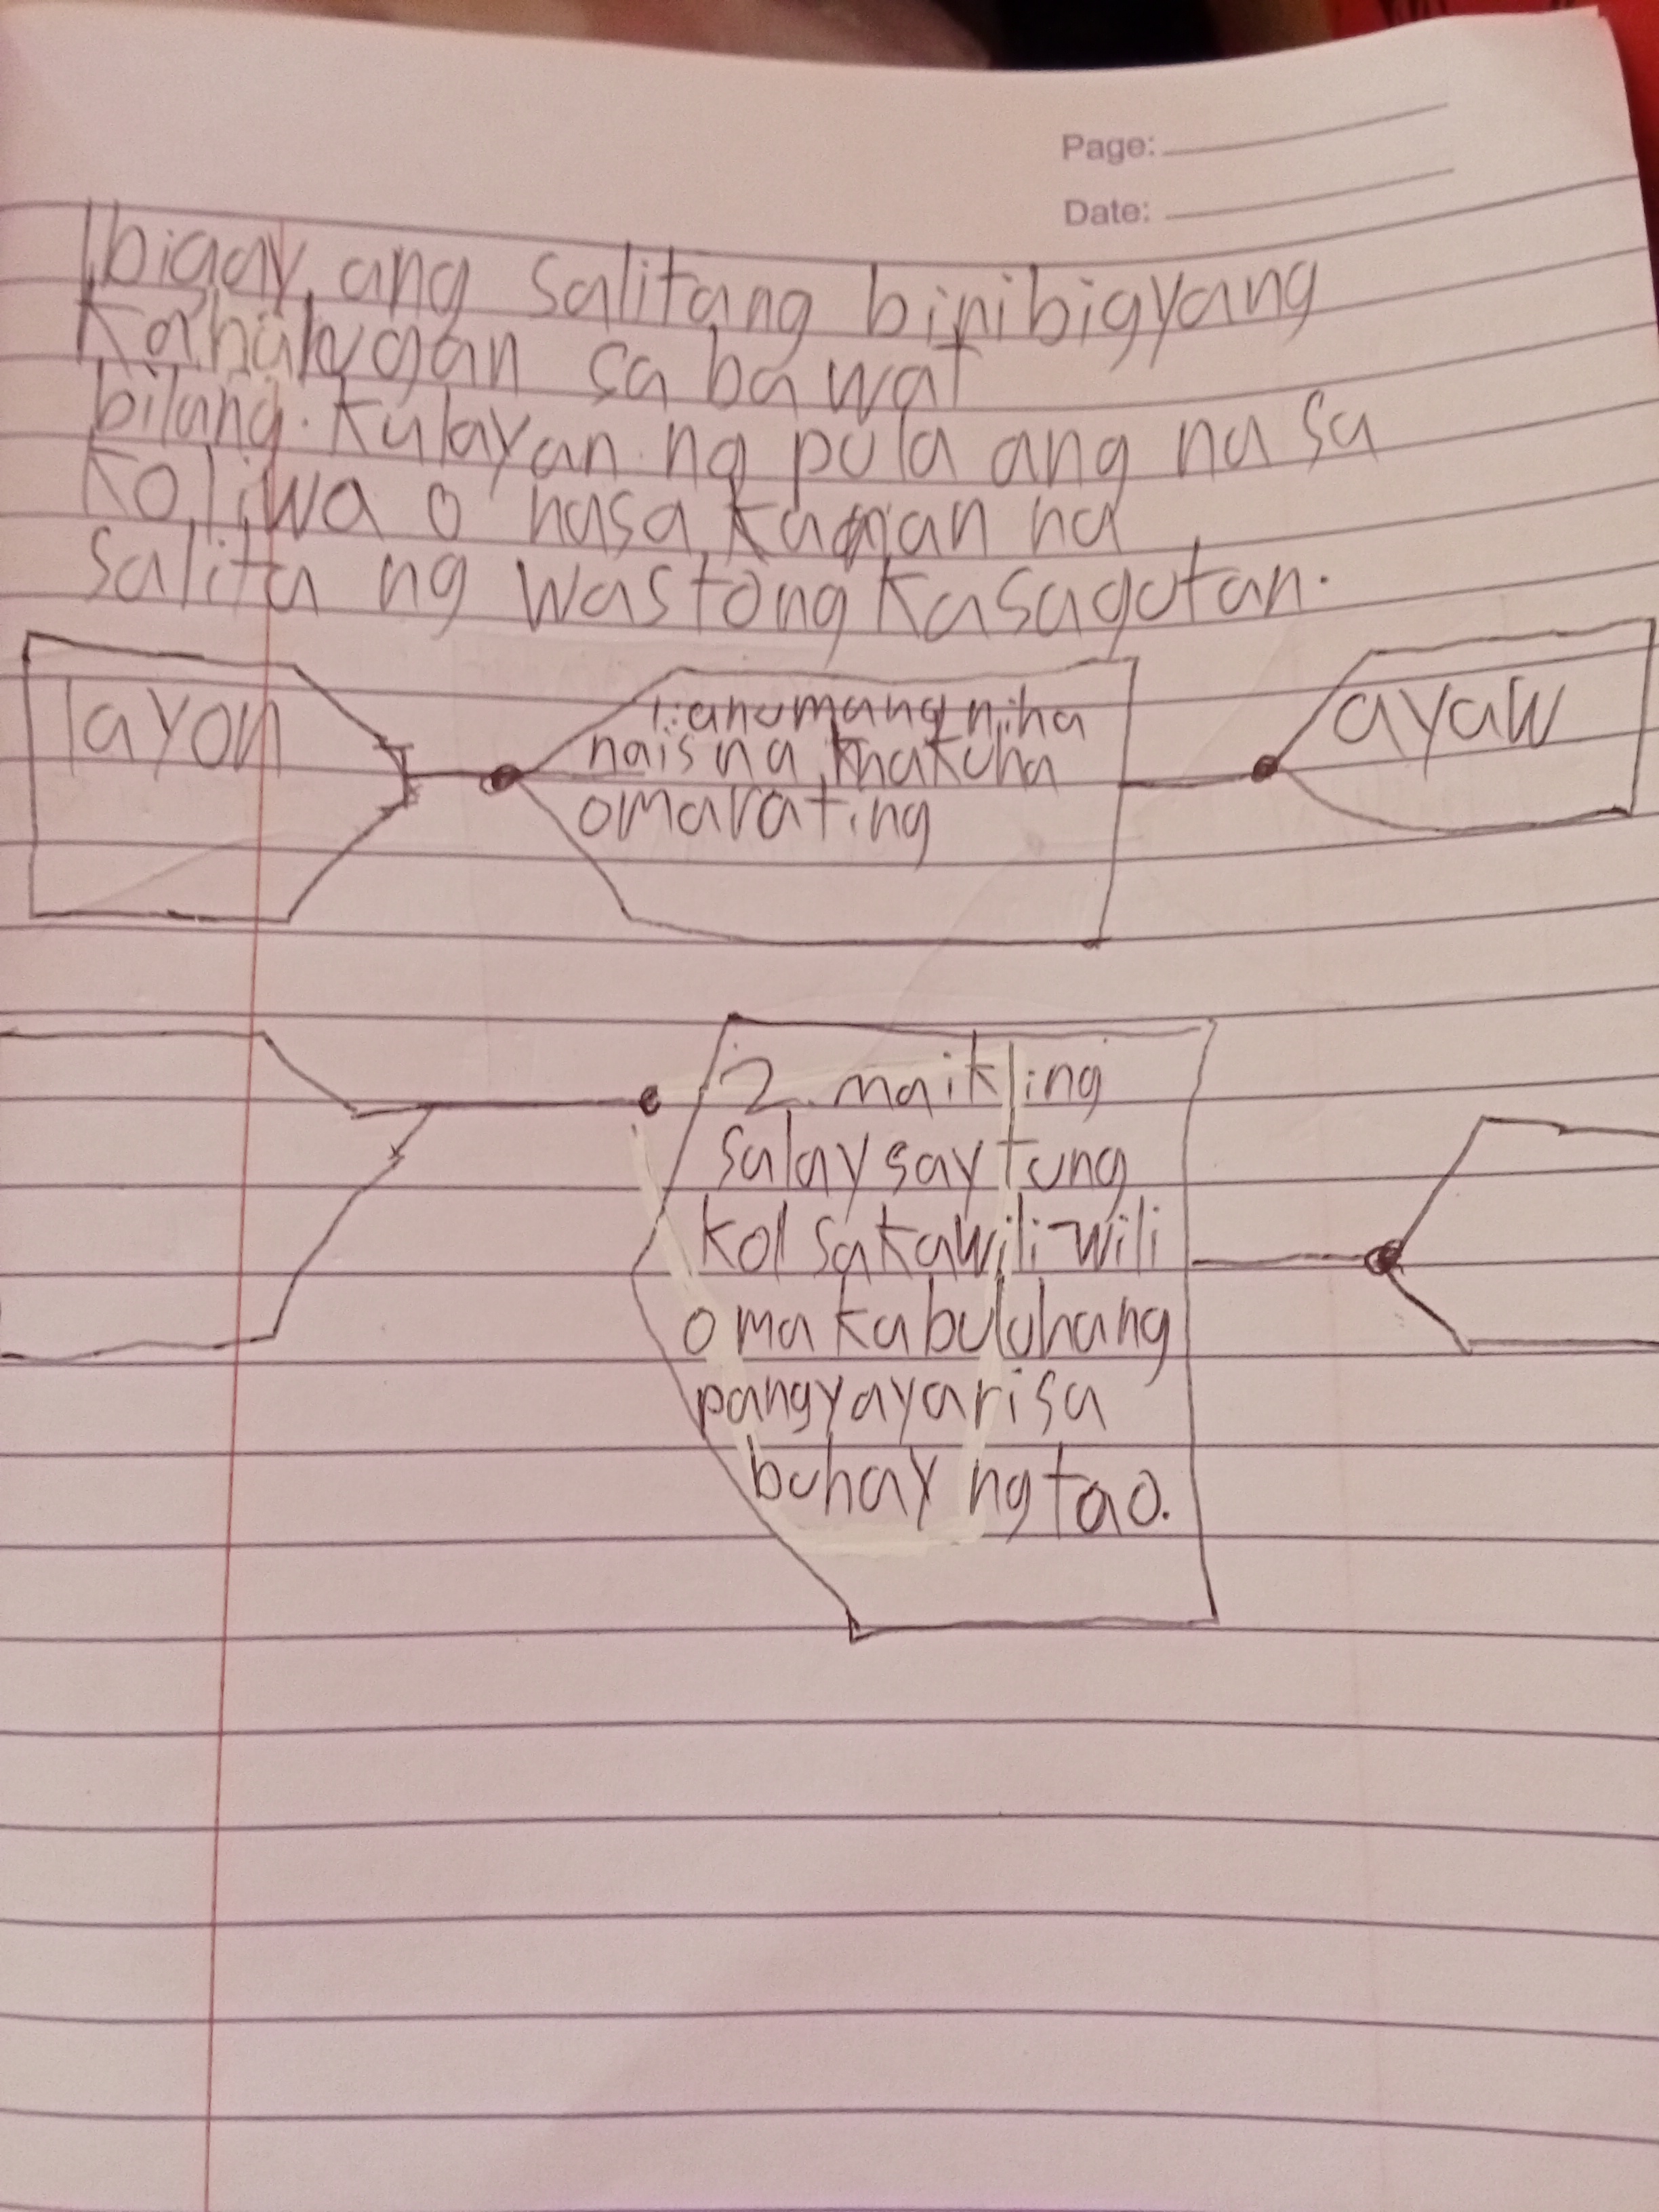 Page:
Date:
Ibigay ang salitang binibigyang
Kahulugan sa bawat
bilang. Kulayan ng pula ang nasa
Koliwa o nasa Kanan na
salita ng wastong Kasagutan.
layon
1. anumang ninanais na makuha
o marating
ayaw
2. maikling
salaysay tung
kol sa kawili-wili
o makabuluhang
pangyayari sa
buhay ng tao.